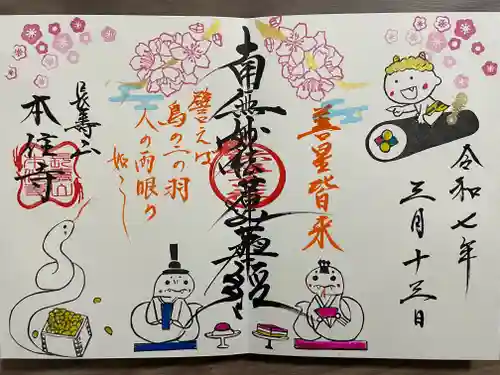 令和七年
三月十三日
善星皆来
南無妙法蓮華経
譬えば
鳥の二の羽
人の両眼の
如し
長寿山
本住寺